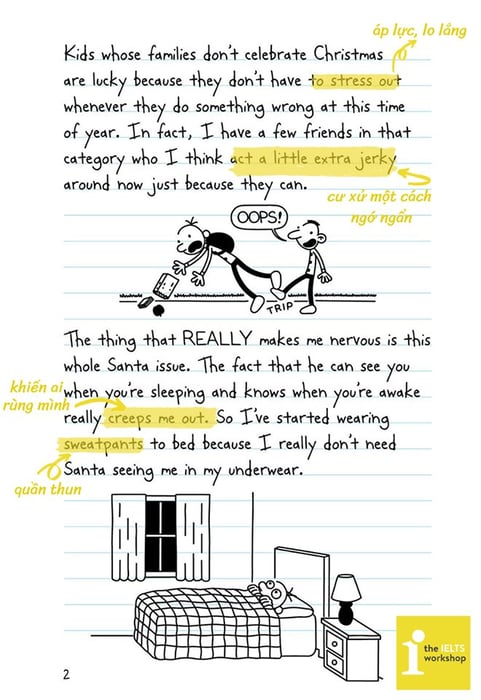 áp lực, lo lắng
Kids whose families don't celebrate Christmas
are lucky because they don't have to stress out
whenever they do something wrong at this time
of year. In fact, I have a few friends in that
category who I think act a little extra jerky
around now just because they can.
cư xử một cách
ngớ ngẩn
OOPS!
TRIP
The thing that REALLY makes me nervous is this
whole Santa issue. The fact that he can see you
khiến ai
rùng mình
when you're sleeping and knows when you're awake
really creeps me out. So I've started wearing
sweatpants to bed because I really don't need
Santa seeing me in my underwear.
quần thun
2
the IELTS
workshop